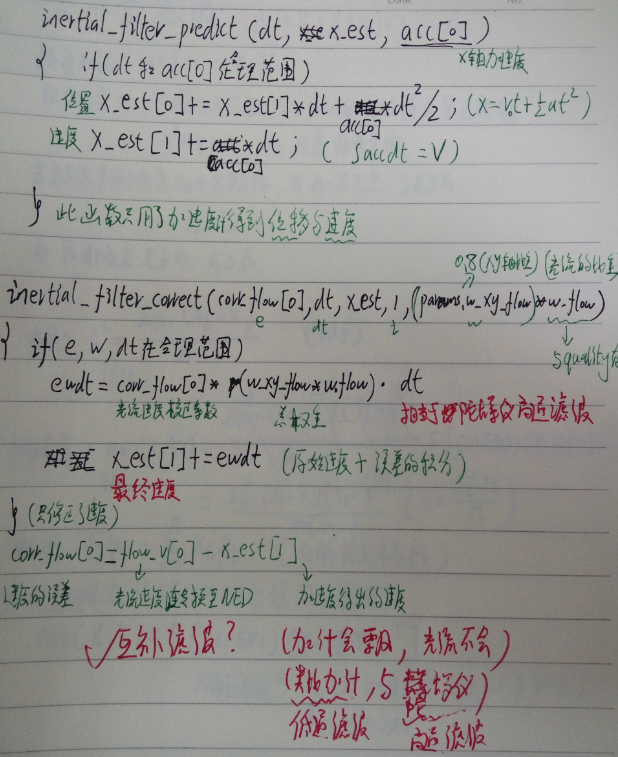 inertial_filter_predict (dt, x_est, acc[0])
x轴加速度
{ if(dt和acc[0]在合理范围)
位置 x_est[0] += x_est[1]*dt + acc[0]*dt²/2; (x=v₀t+½at²)
速度 x_est[1] += acc[0]*dt; (∫accdt = V)
} 此函数只用了加速度得到位移与速度
0.8(xy轴权重) (光流的权重
inertial_filter_correct(corr_flow[0], dt, x_est, 1, (params.w_xy_flow)*w_flow)
e dt i w
{ if(e, w, dt在合理范围)
squality
ewdt = corr_flow[0] * (w_xy_flow*w_flow) · dt
光流速度校正系数 总权重 相当于陀螺仪高通滤波
x_est[1] += ewdt (原始速度+误差的积分)
最终速度
} (只修正了速度)
corr_flow[0] = flow_v[0] - x_est[1]
速度的误差 光流速度旋转换至NED 加速度得出的速度
✓互补滤波? (加计会飘,光流不会)
(类比加计,与陀螺仪)
低通滤波 高通滤波